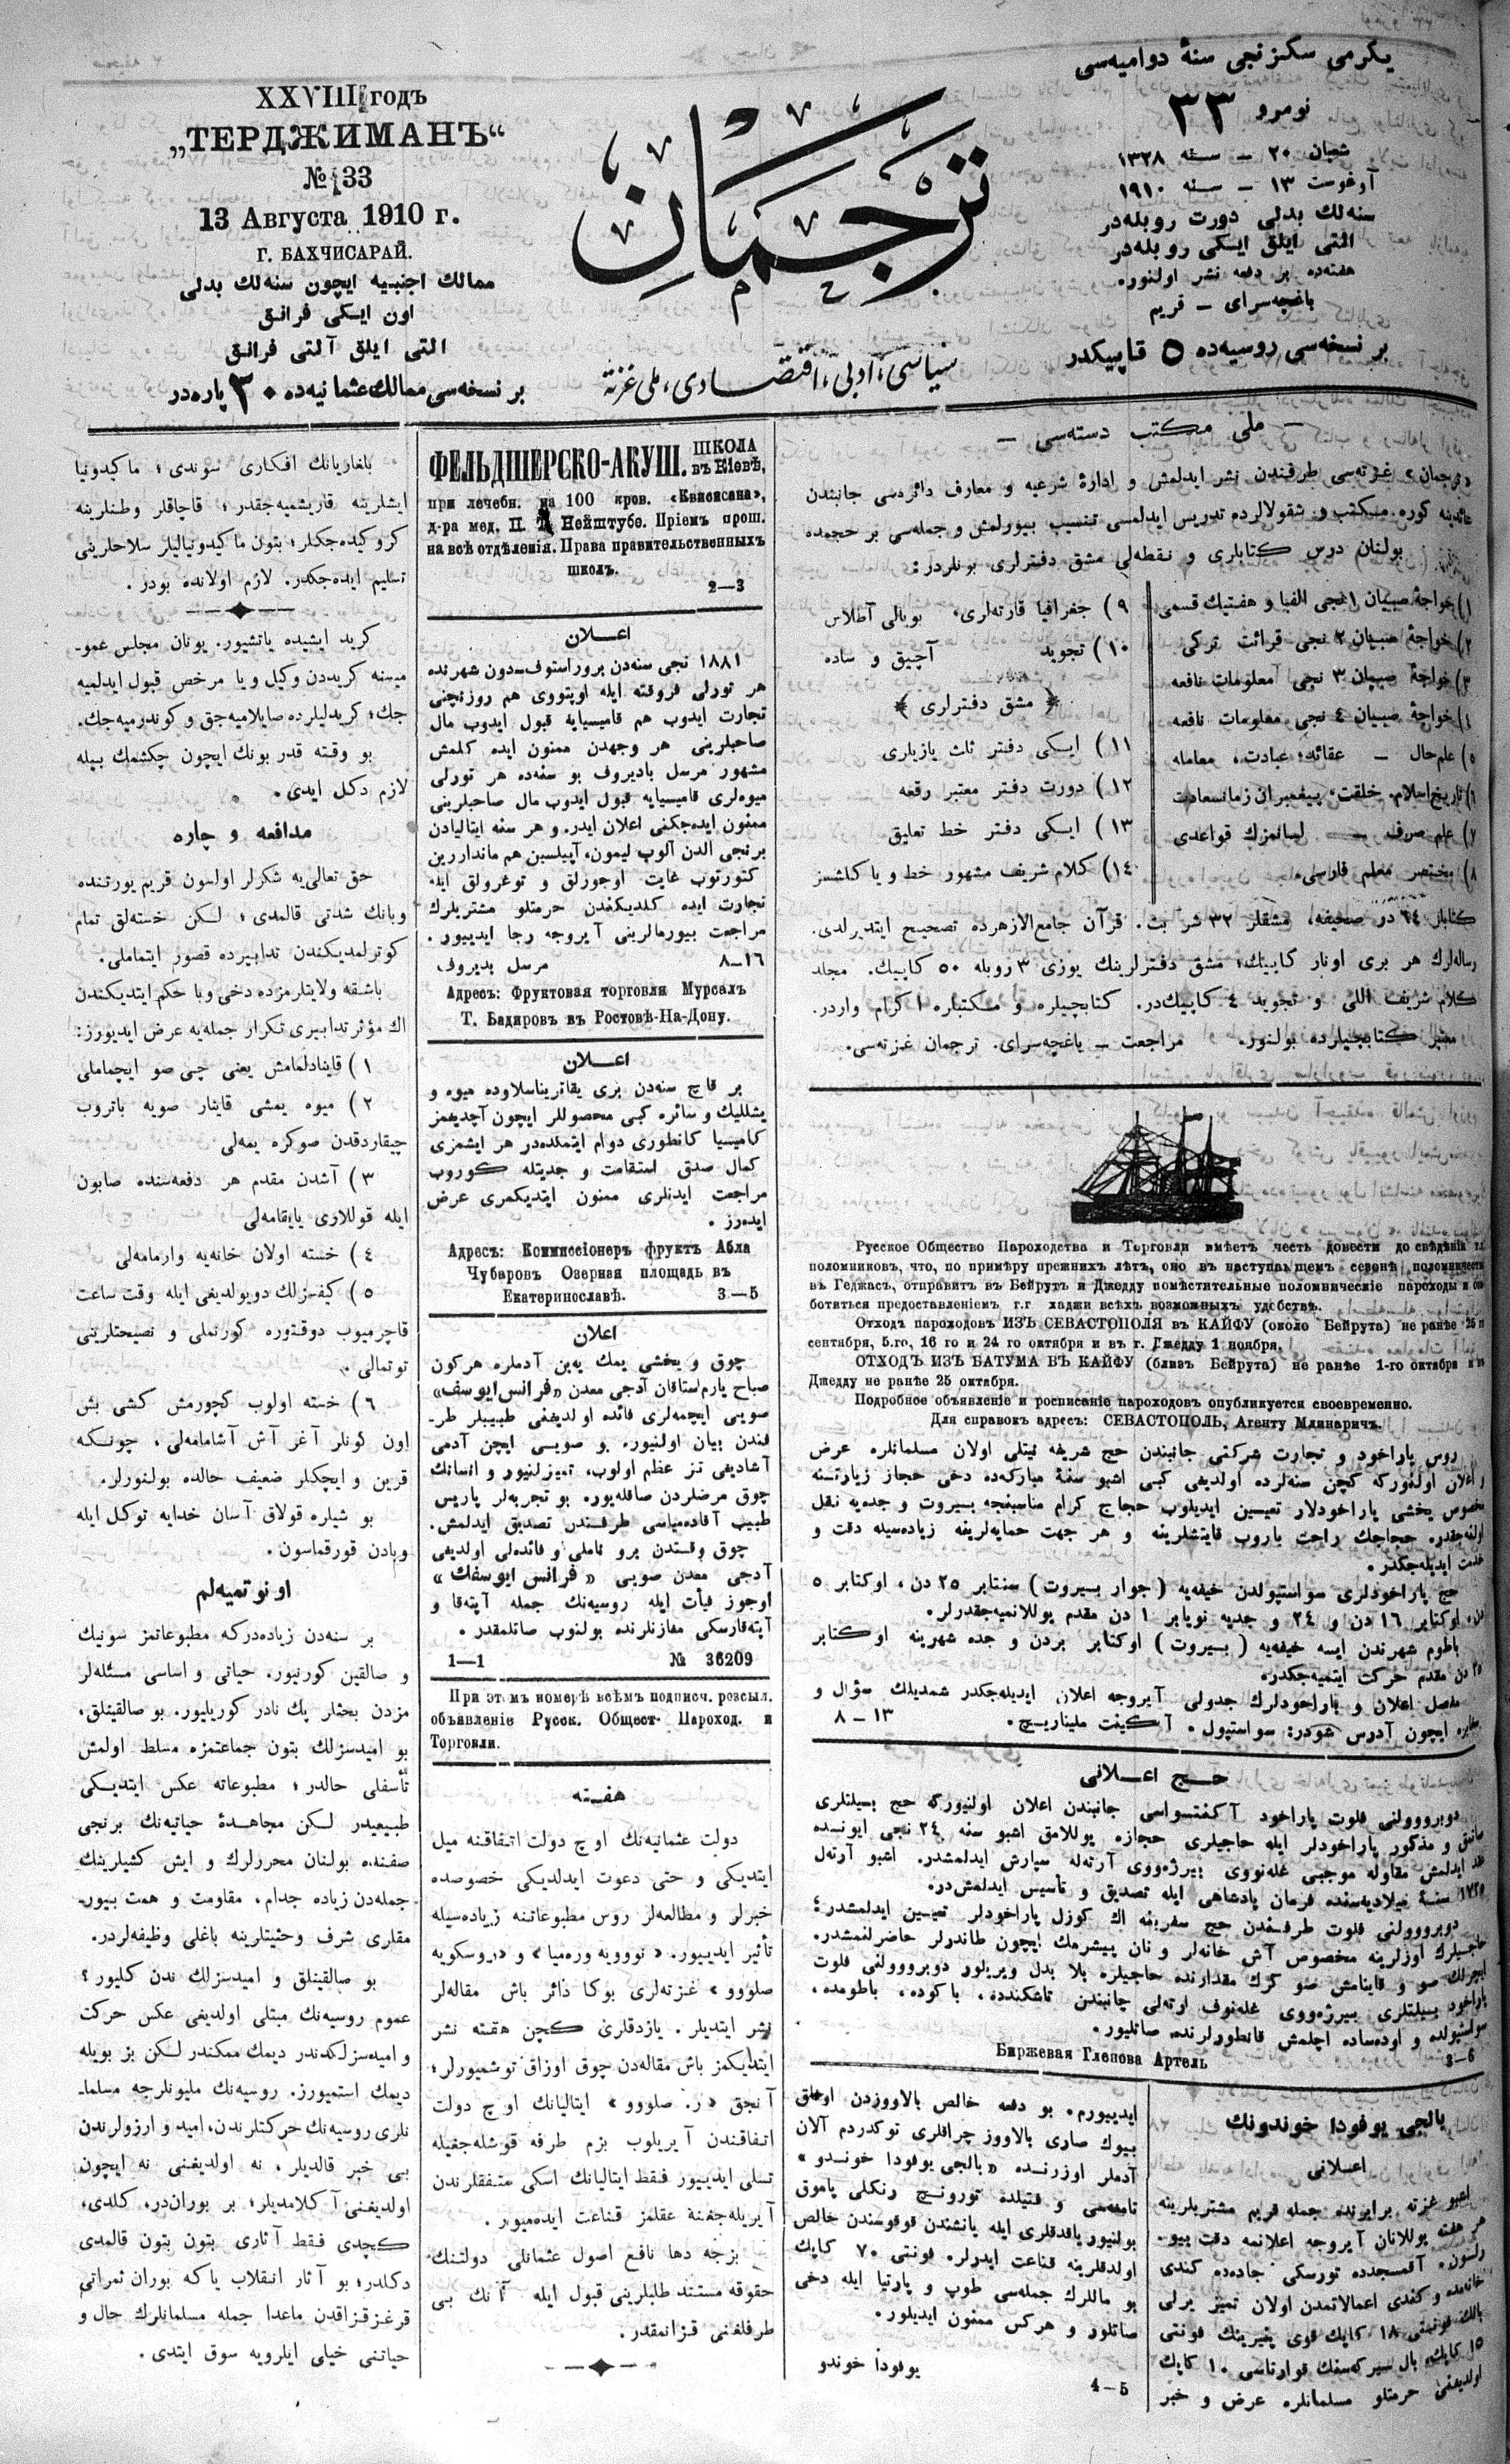 يكرمى سكزنجى سنۀ دواميه‌سى
نومرو ٣٣
شعبان ٢٠ – سنه ١٣٢٨
آوغوست ١٣ – سنه ١٩١٠
سنه‌لك بدلى دورت روبله‌در
التى ايلق ايكى روبله‌در
هفته‌ده بر دفعه نشر اولنور.
باغچه‌سراى – قريم
بر نسخه‌سى روسيه‌ده ٥ قاپيكدر
ترجمان
سياسى، ادبى، اقتصادى، ملى غزته
XXVIII годъ
„ТЕРДЖИМАНЪ“
№ 33
13 Августа 1910 г.
Г. БАХЧИСАРАЙ.
ممالك اجنبيه ايچون سنه‌لك بدلى
اون ايكى فرانق
التى ايلق آلتى فرانق
بر نسخه‌سى ممالك عثمانيه‌ده ٣٠ پاره‌در
– ملى مكتب دسته‌سى –
«ترجمان» غزته‌سى طرفندن نشر ايدلمش و ادارۀ شرعيه و معارف دائره‌سى جانبندن
عائدينه كوره مكتب و شقولالرده تدريس ايدلمسى تنسيب بيورلمش و جمله‌سى بر حجمده
بولنان درس كتابلرى و نقطه‌لى مشق دفترلرى بونلردر:
١) خواجۀ صبيان ١نجى الفبا و هفتيك قسمى
٢) خواجۀ صبيان ٢ نجى قرائت تركى
٣) خواجۀ صبيان ٣ نجى معلومات نافعه
٤) خواجۀ صبيان ٤ نجى معلومات نافعه
٥) علم حال – عقائد، عبادت، معامله
٦) تاريخ اسلام. خلقت، پيغمبران زمانسعادت
٧) علم صرف – لسانمزك قواعدى
٨) مختصر معلم فارسى.
٩) جغرافيا قارته‌لرى، بويالى آطلاس
١٠) تجويد آچيق و ساده
﴿ مشق دفترلرى ﴾
١١) ايكى دفتر ثلث يازيلرى
١٢) دورت دفتر معتبر رقعه
١٣) ايكى دفتر خط تعليق
١٤) كلام شريف مشهور خط و ياكلشسز
كتابلر ٦٤ در صحيفه، مشقلر ٣٢ شر بت. قرآن جامع‌الازهرده تصحيح ايتديرلدى.
رساله‌لرك هر برى اونار كاپيك؛ مشق دفترلرينك يوزى ٣ روبله ٥٠ كاپيك. مجلد
كلام شريف اللى و تجويد ٤ كاپيك‌در. كتابچيلره و مكتبلره اكرام واردر.
معتبر كتابجيلرده بولنور. مراجعت – باغچه‌سراى. ترجمان غزته‌سى.
Русское Общество Пароходства и Торговли имѣетъ честь довести до свѣдѣнія г.г.
поломниковъ, что, по примѣру прежнихъ лѣтъ, оно въ наступающемъ сезонѣ поломничества
въ Геджасъ, отправитъ въ Бейрутъ и Джедду помѣстительные поломническіе пароходы и
ботиться предоставленіемъ г.г. хаджи всѣхъ возможныхъ удобствъ.
Отходъ пароходовъ ИЗЪ СЕВАСТОПОЛЯ въ КАЙФУ (около Бейрута) не ранѣе 25 го
сентября, 5.го, 16 го и 24 го октября и въ г. Джедду 1 ноября.
ОТХОДЪ ИЗЪ БАТУМА ВЪ КАЙФУ (близъ Бейрута) не ранѣе 1-го октября и въ
Джедду не ранѣе 25 октября.
Подробное объявленіе и росписаніе пароходовъ опубликуется своевременно.
Для справокъ адресъ: СЕВАСТОПОЛЬ, Агенту Млинаричъ.
روس پاراخود و تجارت شركتى جانبندن حج شريفه نيتلى اولان مسلمانلره عرض
و اعلان اولنوركه كچن سنه‌لرده اولديغى كبى اشبو سنۀ مباركه‌ده دخى حجاز زيارتنه
مخصوص يخشى پاراخودلار تعيين ايديلوب حجاج كرام مناسبنجه بيروت و جده‌يه نقل
اولنه‌جقدر. حجاجك راحت باروب قايتشلرينه و هر جهت حمايه‌لرينه زياده‌سيله دقت و
خدمت ايديله‌جكدر.
حج پاراخودلرى سواستپولدن خيفه‌يه (جوار بيروت) سنتابر ٢٥ دن، اوكتابر ٥
دن، اوكتابر ١٦ دن و ٢٤ و جديه نويابر ١ دن مقدم يوللانميه‌جقدرلر.
باطوم شهرندن ايسه خيفه‌يه (بيروت) اوكتابر بردن و جده شهرينه اوكتابر
٢٥ دن مقدم حركت ايتميه‌جكدر.
مفصل اعلان و پاراخودلرك جدولى آيروجه اعلان ايديله‌جكدر شمديلك سؤال و
مخابره ايچون آدرس شودر: سواستپول. آگينت مليناريچ. ١٣ – ٨
حج اعلانى
دوبروولنى فلوت پاراخود آگنتسواسى جانبندن اعلان اولنيوركه حج بيلتلرى
صاتمق و مذكور پاراخودلر ايله حاجيلرى حجازه يوللامق اشبو سنه ٢٤ نجى ايونده
عقد ايدلمش مقاوله موجبى غله‌نووى بيرژه‌ووى آرته‌له سپارش ايدلمشدر. اشبو آرته‌ل
سنۀ ميلاديه‌سنده فرمان پادشاهى ايله تصديق و تأسيس ايدلمش‌در.
دوبروولنى فلوت طرفندن حج سفرينه اك كوزل پاراخودلر تعيين ايدلمشدر؛
حاجيلرك اوزلرينه مخصوص آش خانه‌لر و نان پيشرمك ايچون طاندرلر حاضرلنمشدر.
ايچرلك صو و قاينامش صو كرك مقدارنده حاجيلره بلا بدل ويريلور دوبروولنى فلوت
پاراخود بيلتلرى بيرژه‌ووى غله‌نوف ارته‌لى جانبندن تاشكندده، باكوده، باطومده،
سواستپولده و اوده‌ساده اچلمش قانطورلرنده صاتليور.
Биржевая Гленова Артель
3–6
يالجى يوفودا خوندونك
اعلانى
اشبو غزته برايونده جمله قريم مشتريلرينه
هر هفته يوللانان آيروجه اعلانمه دقت بيو-
رلسون. آقمسجدده تورسكى جاده‌ده كندى
خانه‌مده و كندى اعمالاتمدن اولان تميز يرلى
بالك فونتى ١٨ كاپك قوى پنيرينك فونتى
١٥ كاپك، بال سيركه‌سنك قوارتاسى ١٠ كاپك
اولديغنى حرمتلو مسلمانلره عرض و خبر
ايدييورم. بو دفعه خالص بالاووزدن اوفاق
بيوك صارى بالاووز چراقلرى توكدردم آلان
آدملر اوزرنده «بالجى يوفودا خوندو»
تامغه‌سى و فتيلده تورونج رنكلى پاموق
بولنيور ياقدقلرى ايله يانشندن قوقوسندن خالص
اولدقلرينه قناعت ايدرلر. فونتى ٧٠ كاپك
بو ماللرك جمله‌سى طوپ و پارتيا ايله دخى
صاتلور و هركس ممنون ايديلور.
يوفودا خوندو
4–5
ФЕЛЬДШЕРСКО-АКУШ. ШКОЛА
въ Кіевѣ,
при лечебн. на 100 кров. «Квисисана»,
д-ра мед. П. Т. Нейштубе. Пріемъ прош.
на всѣ отдѣленія. Права правительственныхъ
школъ.
2—3
اعلان
١٨٨١ نجى سنه‌دن برو راستوف-دون شهرنده
هر تورلى فروقته ايله اوپتووى هم روزنچنى
تجارت ايدوب هم قاميسيايه قبول ايدوب مال
صاحبلرينى هر وجهدن ممنون ايده كلمش
مشهور مرسل باديروف بو سنه‌ده هر تورلى
ميوه‌لرى قاميسيايه قبول ايدوب مال صاحبلرينى
ممنون ايده‌جكنى اعلان ايدر. و هر سنه ايتاليادن
برنجى الدن آلوب ليمون، آپيلسين هم مانداررين
كتورتوب غايت اوجوزلق و توغرولق ايله
تجارت ايده كلديكندن حرمتلو مشتريلرك
مراجعت بيورمالرينى آيروجه رجا ايدييور.
١٦–٨ مرسل بديروف
Адресъ: Фруктовая торговля Мурсалъ
Т. Бадировъ въ Ростовѣ-На-Дону.
اعلان
بر قاچ سنه‌دن برى يقاتريناسلاوده ميوه و
يشلليك و سائره كبى محصوللر ايچون آچديغمز
كاميسيا كانطورى دوام ايتمكده‌در هر ايشمزى
كمال صدق استقامت و جديتله كوروب
مراجعت ايدنلرى ممنون ايتديكمزى عرض
ايده‌رز.
Адресъ: Коммиссіонеръ фруктъ Абла
Чубаровъ Озерная площадь въ
Екатеринославѣ.
3—5
اعلان
چوق و يخشى يمك ييين آدملره هركون
صباح يارم استاقان آدجى معدن «فرانس ايوسف»
صويى ايچمه‌لرى فائده اولديغنى طبيبلر طر-
فندن بيان اولنيور. بو صويى ايچن آدمى
آشاديغى تز عظم اولوب، تميزلنيور و انسانك
چوق مرضلردن صاقله‌يور. بو تجربه‌لر پاريس
طبيب آقاده‌مياسى طرفندن تصديق ايدلمش.
چوق وقتدن برو ناملى و فائده‌لى اولديغى
آدجى معدن صويى «فرانس ايوسفك»
اوجوز فيأت ايله روسيه‌نك جمله آپته‌قا و
آپته‌قارسكى مغازنلرنده بولنوب صاتلمقدر.
1—1 № 36209
При этомъ номерѣ всѣмъ подписч. розсыл.
объявленіе Русск. Общест. Пароход. и
Торговли.
هفته
دولت عثمانيه‌نك اوچ دولت اتفاقنه ميل
ايتديكى و حتى دعوت ايدلديكى خصوصده
خبرلر و مطالعه‌لر روس مطبوعاتنه زياده‌سيله
تأثير ايدييور. «نوويه وره‌ميا» و «روسكويه
صلووو» غزته‌لرى بوكا دائر باش مقاله‌لر
نشر ايتديلر. يازدقلرى كچن هفته نشر
ايتديكمز باش مقاله‌دن چوق اوزاق توشميورلر؛
آنجق «ر. صلووو» ايتاليانك اوچ دولت
اتفاقندن آيريلوب بزم طرفه قوشله‌جغيله
تسلى ايدييور فقط ايتاليانك اسكى متفقلرندن
آيريله‌جغنه عقلمز قناعت ايده‌ميور.
بزجه دها نافع اصول عثمانلى دولتنك
حقوقه مستند طلبلرينى قبول ايله آنك بى
طرفلغنى قزانمقدر.
بلغاريانك افكارى سوندى؛ ماكيدونيا
ايشلرينه قاريشميه‌جقدر؛ قاچاقلر وطنلرينه
كروكيده‌جكلر؛ بتون ماكيدونياليلر سلاحلرينى
تسليم ايده‌جكدر. لازم اولانده بودر.
كريد ايشيده ياتشيور. يونان مجلس عمو-
ميسنه كريددن وكيل ويا مرخص قبول ايدلميه
جك؛ كريدليلرده صايلاميه‌جق و كوندرميه‌جك.
بو وقته قدر بونك ايچون چكشمك بيله
لازم دكل ايدى.
مدافعه و چاره
حق تعالى‌يه شكرلر اولسون قريم يورتنده
وبانك شدتى قالمدى؛ لكن خسته‌لق تمام
كوترلمديكندن تدابيرده قصور ايتماملى.
باشقه ولايتلرمزده دخى وبا حكم ايتديكندن
اك مؤثر تدابيرى تكرار جمله‌يه عرض ايديورز:
١) قاينادلمامش يعنى چى صو ايچماملى
٢) ميوه يمشى قاينار صويه باتروب
چيقاردقدن صوكره يمه‌لى
٣) آشدن مقدم هر دفعه‌سنده صابون
ايله قوللارى يايقامه‌لى
٤) خسته اولان خانه‌يه وارمامه‌لى
٥) كيفسزلك دويولديغى ايله وقت ساعت
قاچرميوب دوقتوره كورنملى و نصيحتلرينى
توتمالى.
٦) خسته اولوب كچورمش كشى بش
اون كونلر آغر آش آشامامه‌لى، چونكه
قرين و ايچكيلر ضعيف حالده بولنورلر.
بو شيلره قولاق آسان خدايه توكل ايله
وبادن قورقماسون.
اونوتميه‌لم
بر سنه‌دن زياده‌دركه مطبوعاتمز سونيك
و صالقين كورنيور. حياتى و اساسى مسئله‌لر
مزدن بحثلر پك نادر كوريليور. بو صالقينلق،
بو اميدسزلك بتون جماعتمزه مسلط اولمش
تأسفلى حالدر؛ مطبوعاته عكس ايتديكى
طبيعيدر لكن مجاهدۀ حياتيه‌نك برنجى
صفنده بولنان محررلرك و ايش كشيلرينك
جمله‌دن زياده جدام، مقاومت و همت بيور-
مقلرى شرف وحثيتلرينه باغلى وظيفه‌لردر.
بو صالقينلق و اميدسزلك ندن كليور؟
عموم روسيه‌نك مبتلى اولديغى عكس حركت
و اميدسزلكدندر ديمك ممكندر لكن بز بويله
ديمك استميورز. روسيه‌نك مليونلرجه مسلما-
نلرى روسيه‌نك حركتلرندن، اميد و ارزولرندن
بى خبر قالديلر، نه اولديغنى نه ايچون
اولديغنى آكلامديلر؛ بر بوران‌در، كلدى،
كچدى فقط آثارى بتون بتون قالمدى
دكلدر؛ بو آثار انقلاب ياكه بوران ثمراتى
قرغزقزاقدن ماعدا جمله مسلمانلرك حال و
حياتنى خيلى ايلرويه سوق ايتدى.